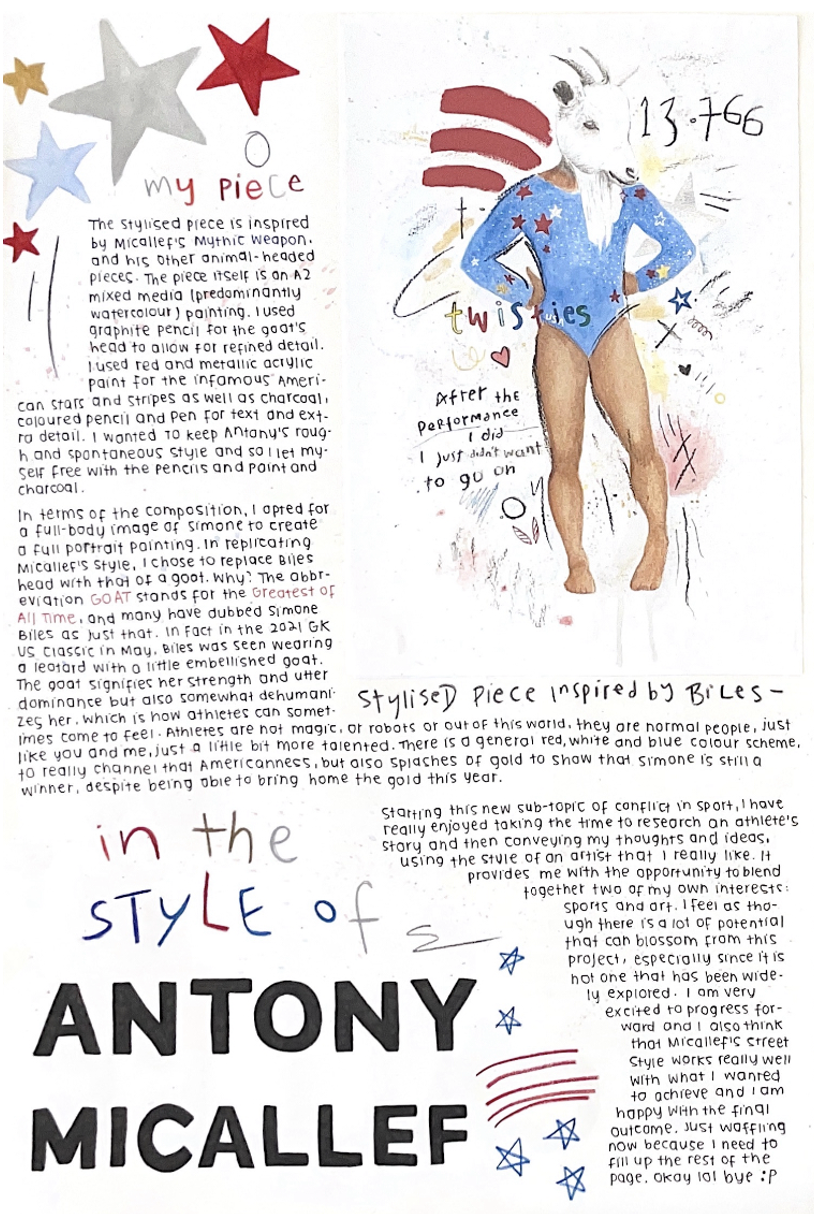 my piece
The stylised piece is inspired
by Micallef's Mythic Weapon.
and his other animal-headed
pieces. The piece itself is an A2
mixed media (predominantly
watercolour) painting. I used
graphite pencil for the goat's
head to allow for refined detail.
I used red and metallic acrylic
paint for the infamous Ameri-
can stars and stripes as well as charcoal,
coloured pencil and pen for text and ext-
ra detail. I wanted to keep Antony's roug-
h and spontaneous style and so I let my-
self free with the pencils and paint and
charcoal.
In terms of the composition, I opted for
a full-body image of Simone to create
a full portrait painting. In replicating
Micallef's style, I chose to replace Biles
head with that of a goat. Why? The abbr-
eviation GOAT stands for the Greatest of
All Time, and many have dubbed Simone
Biles as just that. In fact in the 2021 GK
US Classic in May, Biles was seen wearing
a leotard with a little embellished goat.
The goat signifies her strength and utter
dominance but also somewhat dehumani-
zes her. which is how athletes can somet-
imes come to feel. Athletes are not magic, or robots or out of this world. they are normal people, just
like you and me, just a little bit more talented. There is a general red, white and blue colour scheme,
to really channel that Americanness, but also splashes of gold to show that Simone is still a
winner, despite being able to bring home the gold this year.
13.766
twisties
After the
performance
I did
I just didn't want
to go on
Stylised piece inspired by Biles-
in the
STYLE of
ANTONY
MICALLEF
Starting this new sub-topic of conflict in sport, I have
really enjoyed taking the time to research an athlete's
story and then conveying my thoughts and ideas,
using the style of an artist that I really like. It
provides me with the opportunity to blend
together two of my own interests:
sports and art. I feel as tho-
ugh there is a lot of potential
that can blossom from this
project, especially since it is
not one that has been wide-
ly explored. I am very
excited to progress for-
ward and I also think
that Micallef's street
style works really well
with what I wanted
to achieve and I am
happy with the final
outcome. Just waffling
now because I need to
fill up the rest of the
page. okay lol bye :P